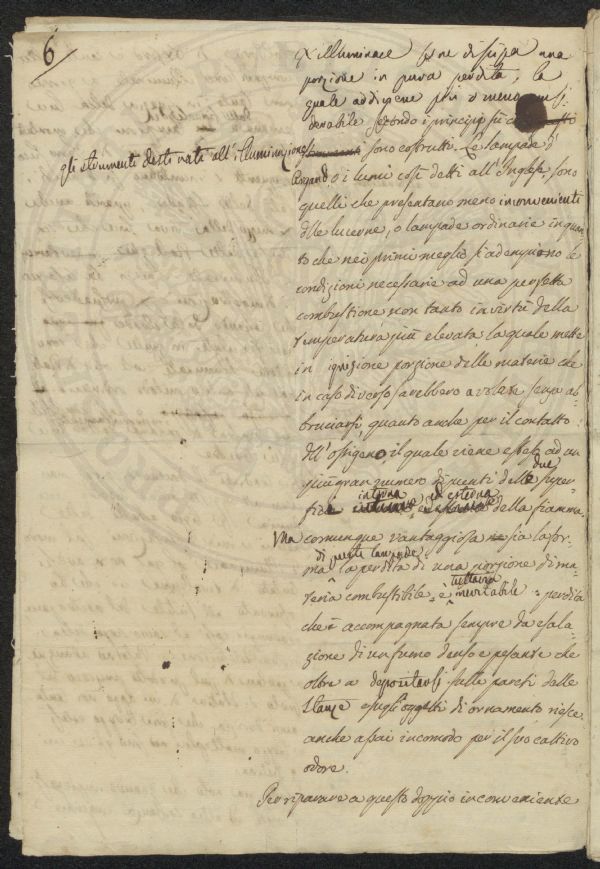 6
d'illuminare se ne dissipa una
porzione in pura perdita, la
quale addiviene più o meno consi-
derabile secondo i principj su cui
gli strumenti destinati all'illuminazione
sono costrutti. Le lampade d'
Argand o i lumi così detti all'Inglese, sono
quelli che presentano meno inconvenienti
delle lucerne, o lampade ordinarie in quan-
to che nei primi meglio si adempiono le
condizioni necessarie ad una perfetta
combustione non tanto in virtù della
temperatura più elevata la quale mette
in ignizione porzione delle materie che
in caso diverso sarebbero volate senza ab-
bruciarsi, quanto anche per il contatto
dell'ossigeno, il quale viene esteso ad un
più gran numero di punti delle due super-
ficie interna ed esterna della fiamma.
Ma comunque vantaggiosa sia la for-
ma di queste lampade la perdita di una porzione di ma-
teria combustibile è tuttavia inevitabile: perdita
che è accompagnata sempre da esala-
zione di un fumo denso e pesante che
oltre a depositarsi sulle pareti delle
stanze e sugli oggetti di ornamento riesce
anche assai incomodo per il suo cattivo
odore.
Per riparare a questo doppio inconveniente